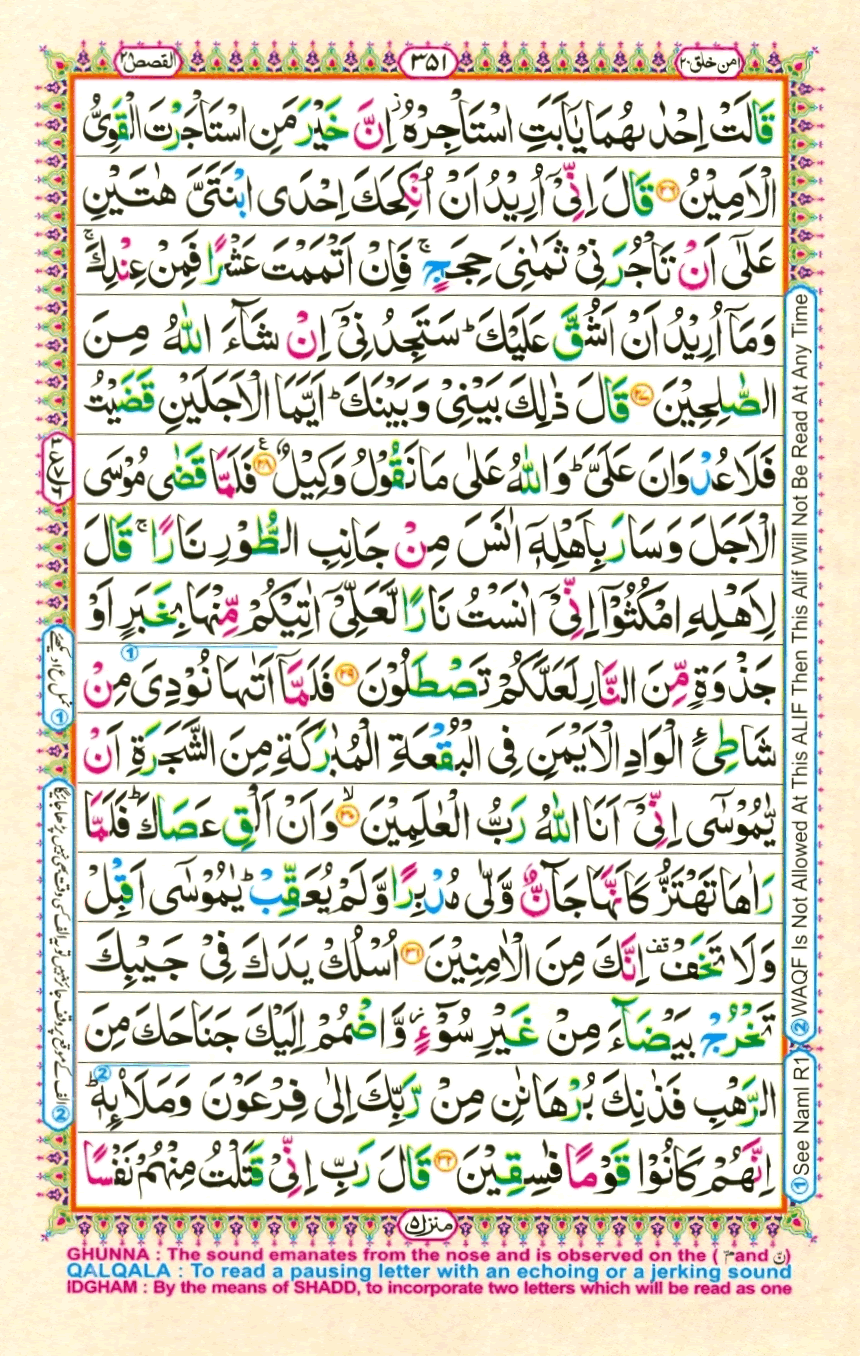 امن خلق ٢٠
٣٥١
القصص ٢٨
قَالَتْ اِحْدٰىهُمَا يٰۤاَبَتِ اسْتَاْجِرْهُ ؗ اِنَّ خَيْرَ مَنِ اسْتَاْجَرْتَ الْقَوِيُّ
الْاَمِيْنُ ﴿۲۶﴾ قَالَ اِنِّيْۤ اُرِيْدُ اَنْ اُنْكِحَكَ اِحْدَى ابْنَتَيَّ هٰتَيْنِ
عَلٰۤى اَنْ تَاْجُرَنِيْ ثَمٰنِيَ حِجَجٍ ۚ فَاِنْ اَتْمَمْتَ عَشْرًا فَمِنْ عِنْدِكَ ۚ
وَمَاۤ اُرِيْدُ اَنْ اَشُقَّ عَلَيْكَ ؕ سَتَجِدُنِيْۤ اِنْ شَآءَ اللّٰهُ مِنَ
الصّٰلِحِيْنَ ﴿۲۷﴾ قَالَ ذٰلِكَ بَيْنِيْ وَبَيْنَكَ ؕ اَيَّمَا الْاَجَلَيْنِ قَضَيْتُ
فَلَا عُدْوَانَ عَلَيَّ ؕ وَاللّٰهُ عَلٰى مَا نَقُوْلُ وَكِيْلٌ ﴿۲۸﴾ فَلَمَّا قَضٰى مُوْسَى
الْاَجَلَ وَسَارَ بِاَهْلِهٖۤ اٰنَسَ مِنْ جَانِبِ الطُّوْرِ نَارًا ۚ قَالَ
لِاَهْلِهِ امْكُثُوْۤا اِنِّيْۤ اٰنَسْتُ نَارًا لَّعَلِّيْۤ اٰتِيْكُمْ مِّنْهَا بِخَبَرٍ اَوْ
جَذْوَةٍ مِّنَ النَّارِ لَعَلَّكُمْ تَصْطَلُوْنَ ﴿۲۹﴾ فَلَمَّاۤ اَتٰىهَا نُوْدِيَ مِنْ
شَاطِئِ الْوَادِ الْاَيْمَنِ فِي الْبُقْعَةِ الْمُبٰرَكَةِ مِنَ الشَّجَرَةِ اَنْ
يّٰمُوْسٰۤى اِنِّيْۤ اَنَا اللّٰهُ رَبُّ الْعٰلَمِيْنَ ﴿۳۰﴾ وَاَنْ اَلْقِ عَصَاكَ ؕ فَلَمَّا
رَاٰهَا تَهْتَزُّ كَاَنَّهَا جَآنٌّ وَّلّٰى مُدْبِرًا وَّلَمْ يُعَقِّبْ ؕ يٰمُوْسٰۤى اَقْبِلْ
وَلَا تَخَفْ قف اِنَّكَ مِنَ الْاٰمِنِيْنَ ﴿۳۱﴾ اُسْلُكْ يَدَكَ فِيْ جَيْبِكَ
تَخْرُجْ بَيْضَآءَ مِنْ غَيْرِ سُوْٓءٍ ؗ وَّاضْمُمْ اِلَيْكَ جَنَاحَكَ مِنَ
الرَّهْبِ فَذٰنِكَ بُرْهَانٰنِ مِنْ رَّبِّكَ اِلٰى فِرْعَوْنَ وَمَلَا۟ئِهٖ ؕ
اِنَّهُمْ كَانُوْا قَوْمًا فٰسِقِيْنَ ﴿۳۲﴾ قَالَ رَبِّ اِنِّيْ قَتَلْتُ مِنْهُمْ نَفْسًا
② WAQF Is Not Allowed At This ALIF Then This Alif Will Not Be Read At Any Time
① See Naml R1
منزل ٥
GHUNNA : The sound emanates from the nose and is observed on the ( مّ and نّ )
QALQALA : To read a pausing letter with an echoing or a jerking sound
IDGHAM : By the means of SHADD, to incorporate two letters which will be read as one